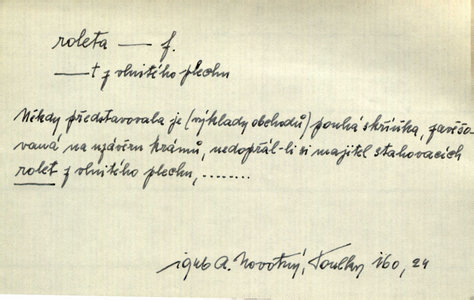 roleta — f.
— t z vlnitého plechu
Někdy představovala je (výklady obchodů) pouhá skříňka, zavěšo-
vaná na uzávěru krámů, nedopřál-li si majitel stahovacích
rolet z vlnitého plechu, ........
A. Novotný, Toulky 160, 24